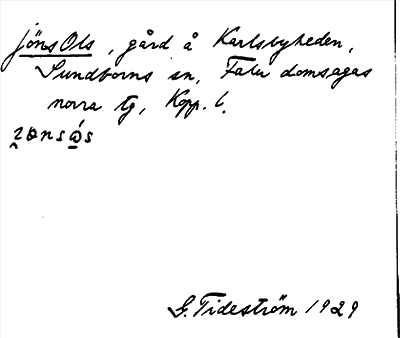 Jöns Ols, gård å Karlsbyheden,
Sundborns sn, Falu domsagas
norra tg, Kopp. l.
G. Tideström 1929